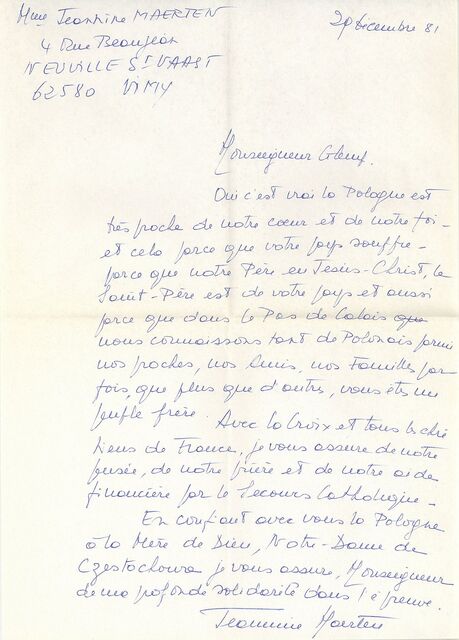 Mme Jeannine MAERTEN
4 Rue Beaujean
NEUVILLE St VAAST
62580 VIMY
29 décembre 81
Monseigneur Glemp.
Oui c'est vrai la Pologne est
très proche de notre cœur et de notre foi -
et cela parce que votre pays souffre -
parce que notre Père en Jesus-Christ, le
Saint-Père est de votre pays et aussi
parce que dans le Pas de Calais que
nous connaissons tant de Polonais parmi
nos proches, nos Amis, nos Familles par
fois, que plus que d'autres, vous êtes un
peuple frère. Avec la Croix et tous les chré
tiens de France, je vous assure de notre
pensée, de notre prière et de notre aide
financière par le Secours Catholique -
En confiant avec vous la Pologne
à la Mère de Dieu, Notre-Dame de
Czestochowa je vous assure, Monseigneur
de ma profonde solidarité dans l'épreuve.
Jeannine Maerten